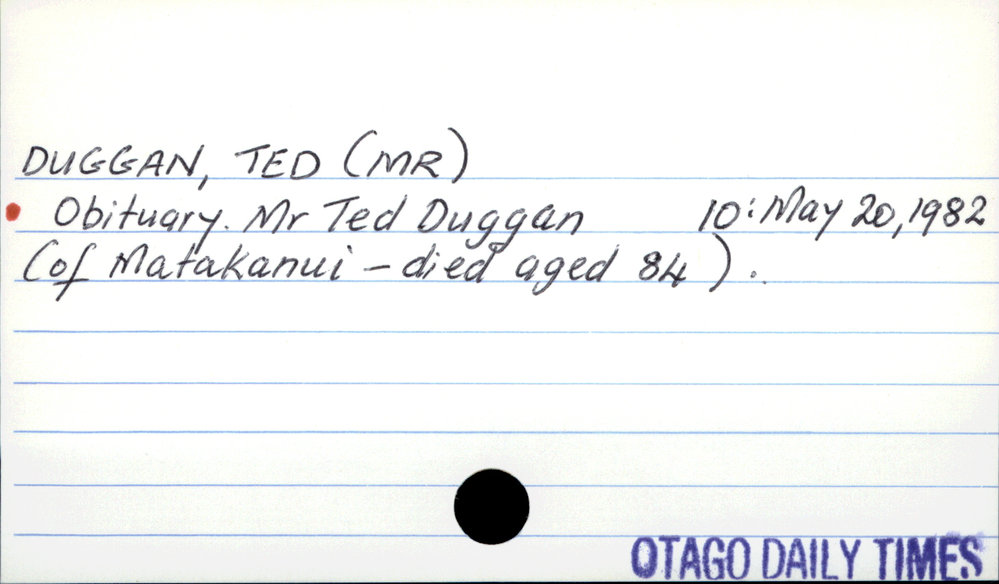 DUGGAN, TED (MR)
Obituary. Mr Ted Duggan 10: May 20, 1982
(of Matakanui – died aged 84).
OTAGO DAILY TIMES